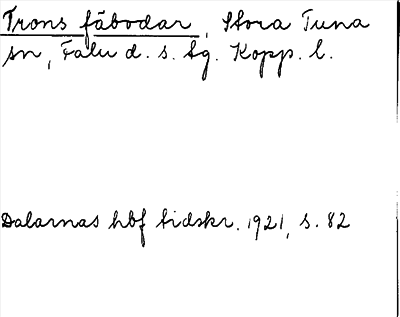 Trons fäbodar, Stora Tuna
sn, Falu d. s. tg. Kopp. l.
Dalarnas hbf tidskr. 1921, s. 82